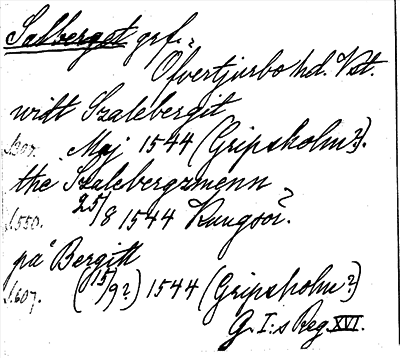 Salberget grf.
Öfvertjurbo hd. Vst.
widt Szalebergit
s.307. Maj 1544 (Gripsholm?).
the Szalebergzmenn
s.550. 25/8 1544 Kungsör?
på Bergitt
s.607. (15/9?) 1544 (Gripsholm?)
G. I:s Reg. XVI.